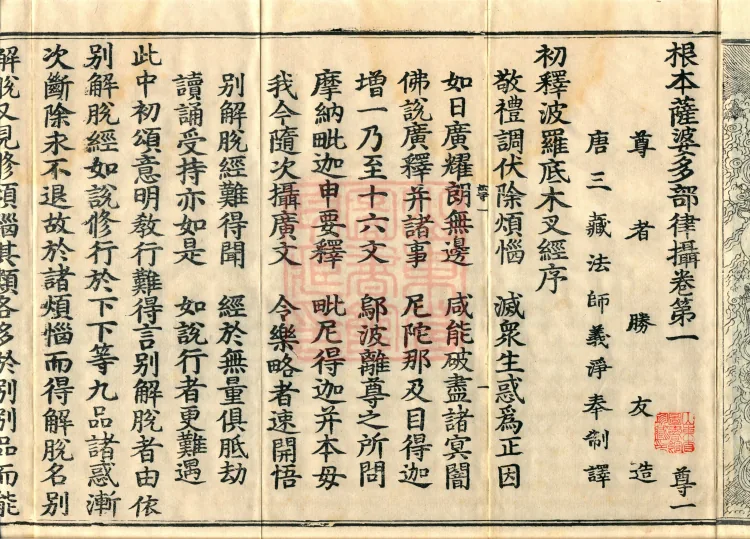 根本薩婆多部律攝卷第一 尊一
尊者勝友造
唐三藏法師義淨奉制譯
初釋波羅底木叉經序
敬禮調伏除煩惱 滅衆生惑爲正因
如日廣耀朗無邊 咸能破盡諸冥闇
佛說廣釋并諸事 尼陀那及目得迦
增一乃至十六文 鄔波離尊之所問
摩納毗迦申要釋 毗尼得迦并本母
我今隨次攝廣文 令樂略者速開悟
別解脫經難得聞 經於無量俱胝劫
讀誦受持亦如是 如說行者更難遇
此中初頌意明教行難得言別解脫者由依
別解脫經如說修行於下下等九品諸惑漸
次斷除永不退故於諸煩惱而得解脫名別
解脫又見修煩惱其類各多於別別品而能